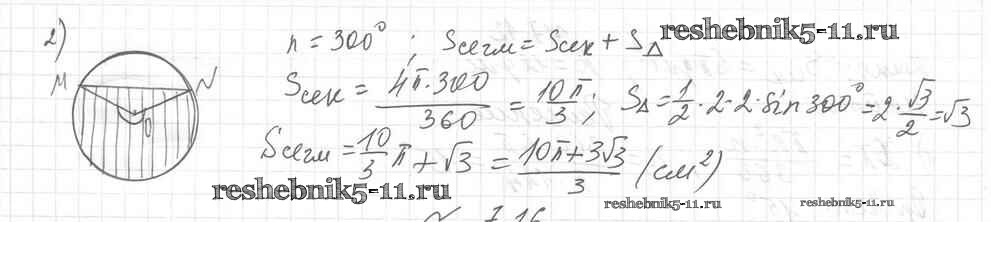 2)
n = 300° ; Sсегм = Sсек + S△
reshebnik5-11.ru
M N O
Sсек = 4π·300/360 = 10π/3 ; S△ = 1/2 · 2 · 2 · sin 300° = 2 · √3/2 = √3
Sсегм = 10/3 π + √3 = (10π+3√3)/3 (см²)
reshebnik5-11.ru
reshebnik5-11.ru
reshebnik5-11.ru